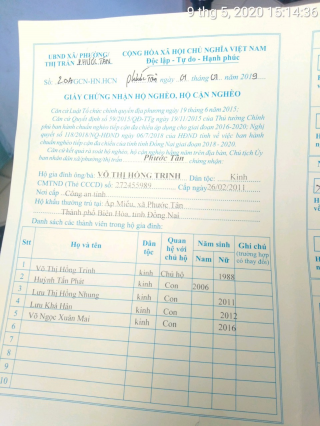 9 thg 5, 2020 15:14:36
UBND XÃ/PHƯỜNG/
THỊ TRẤN PHƯỚC TÂN
CỘNG HÒA XÃ HỘI CHỦ NGHĨA VIỆT NAM
Độc lập - Tự do - Hạnh phúc
Số: GCN-HN.HCN
Phước Tân, ngày 01 tháng 01 năm 2019
GIẤY CHỨNG NHẬN HỘ NGHÈO, HỘ CẬN NGHÈO
Căn cứ Luật Tổ chức chính quyền địa phương ngày 19 tháng 6 năm 2015;
Căn cứ Quyết định số 59/2015/QĐ-TTg ngày 19/11/2015 của Thủ tướng Chính
phủ ban hành chuẩn nghèo tiếp cận đa chiều áp dụng cho giai đoạn 2016-2020; Nghị
quyết số 118/2018/NQ-HĐND ngày 06/7/2018 của HĐND tỉnh về việc ban hành
chuẩn nghèo tiếp cận đa chiều của tỉnh Đồng Nai giai đoạn 2018 - 2020.
Căn cứ kết quả rà soát hộ nghèo, hộ cận nghèo hằng năm trên địa bàn. Chủ tịch Ủy
ban nhân dân xã/phường/thị trấn Phước Tân chứng nhận:
Hộ gia đình ông/bà: VÕ THỊ HỒNG TRINH Dân tộc: Kinh
CMTND (Thẻ CCCD) số: 272455989 Cấp ngày 26/02/2011
Nơi cấp Công an tỉnh
Hộ khẩu thường trú tại: Ấp Miễu, xã Phước Tân
Thành phố Biên Hòa, tỉnh Đồng Nai
Danh sách các thành viên trong hộ gia đình:
Stt Họ và tên Dân tộc Quan hệ với chủ hộ Năm sinh Nam Nữ Ghi chú (trường hợp có thay đổi)
1 Võ Thị Hồng Trinh kinh Chủ hộ 1988
2 Huỳnh Tấn Phát kinh Con 2006
3 Lưu Thị Hồng Nhung kinh Con 2011
4 Lưu Khả Hân kinh Con 2012
5 Võ Ngọc Xuân Mai kinh Con 2016
6
7
8
9
10